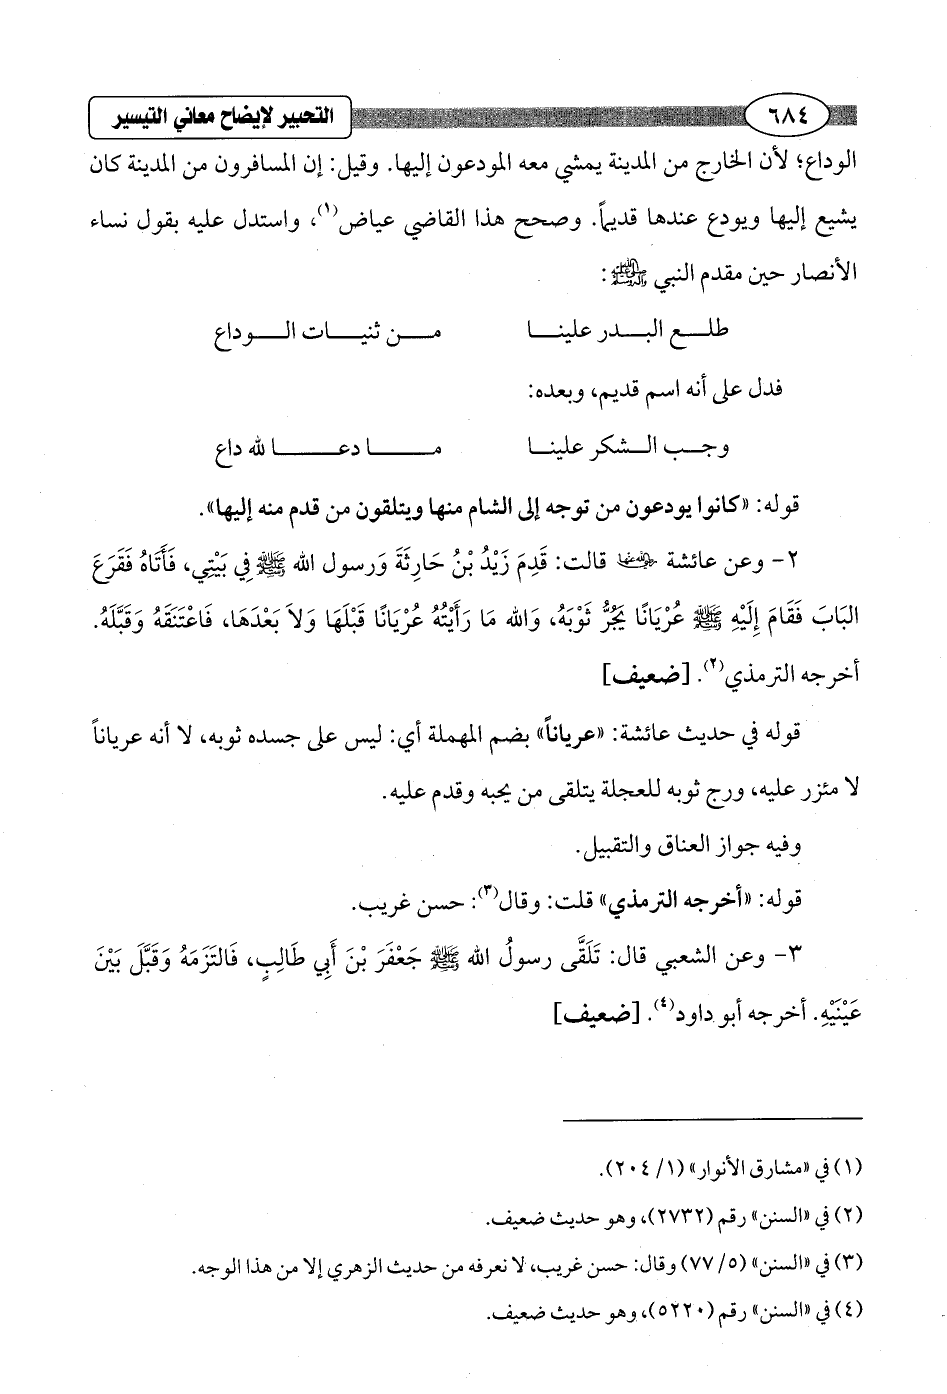 التحبير لإيضاح معاني التيسير
٦٨٤
الوداع؛ لأن الخارج من المدينة يمشي معه المودعون إليها. وقيل: إن المسافرون من المدينة كان
يشيع إليها ويودع عندها قديماً. وصحح هذا القاضي عياض(١)، واستدل عليه بقول نساء
الأنصار حين مقدم النبي ﷺ:
طلـــع البـــدر علينـــا مـــن ثنيـــات الـــوداع
فدل على أنه اسم قديم، وبعده:
وجـــب الـــشكر علينـــا مـــا دعـــا لله داع
قوله: «كانوا يودعون من توجه إلى الشام منها ويتلقون من قدم منه إليها».
٢- وعن عائشة رضي الله عنها قالت: قَدِمَ زَيْدُ بْنُ حَارِثَةَ وَرسول الله ﷺ فِي بَيْتِي، فَأَتَاهُ فَقَرَعَ
البَابَ فَقَامَ إِلَيْهِ ﷺ عُرْيَانًا يَجُرُّ ثَوْبَهُ، وَالله مَا رَأَيْتُهُ عُرْيَانًا قَبْلَهَا وَلاَ بَعْدَهَا، فَاعْتَنَقَهُ وَقَبَّلَهُ.
أخرجه الترمذي(٢). [ضعيف]
قوله في حديث عائشة: «عرياناً» بضم المهملة أي: ليس على جسده ثوبه، لا أنه عرياناً
لا مئزر عليه، ورج ثوبه للعجلة يتلقى من يحبه وقدم عليه.
وفيه جواز العناق والتقبيل.
قوله: «أخرجه الترمذي» قلت: وقال(٣): حسن غريب.
٣- وعن الشعبي قال: تَلَقَّى رسولُ الله ﷺ جَعْفَرَ بْنَ أَبِي طَالِبٍ، فَالتَزَمَهُ وَقَبَّلَ بَيْنَ
عَيْنَيْهِ. أخرجه أبو داود(٤). [ضعيف]
(١) في «مشارق الأنوار» (١/ ٢٠٤).
(٢) في «السنن» رقم (٢٧٣٢)، وهو حديث ضعيف.
(٣) في «السنن» (٥/ ٧٧) وقال: حسن غريب، لا نعرفه من حديث الزهري إلا من هذا الوجه.
(٤) في «السنن» رقم (٥٢٢٠)، وهو حديث ضعيف.